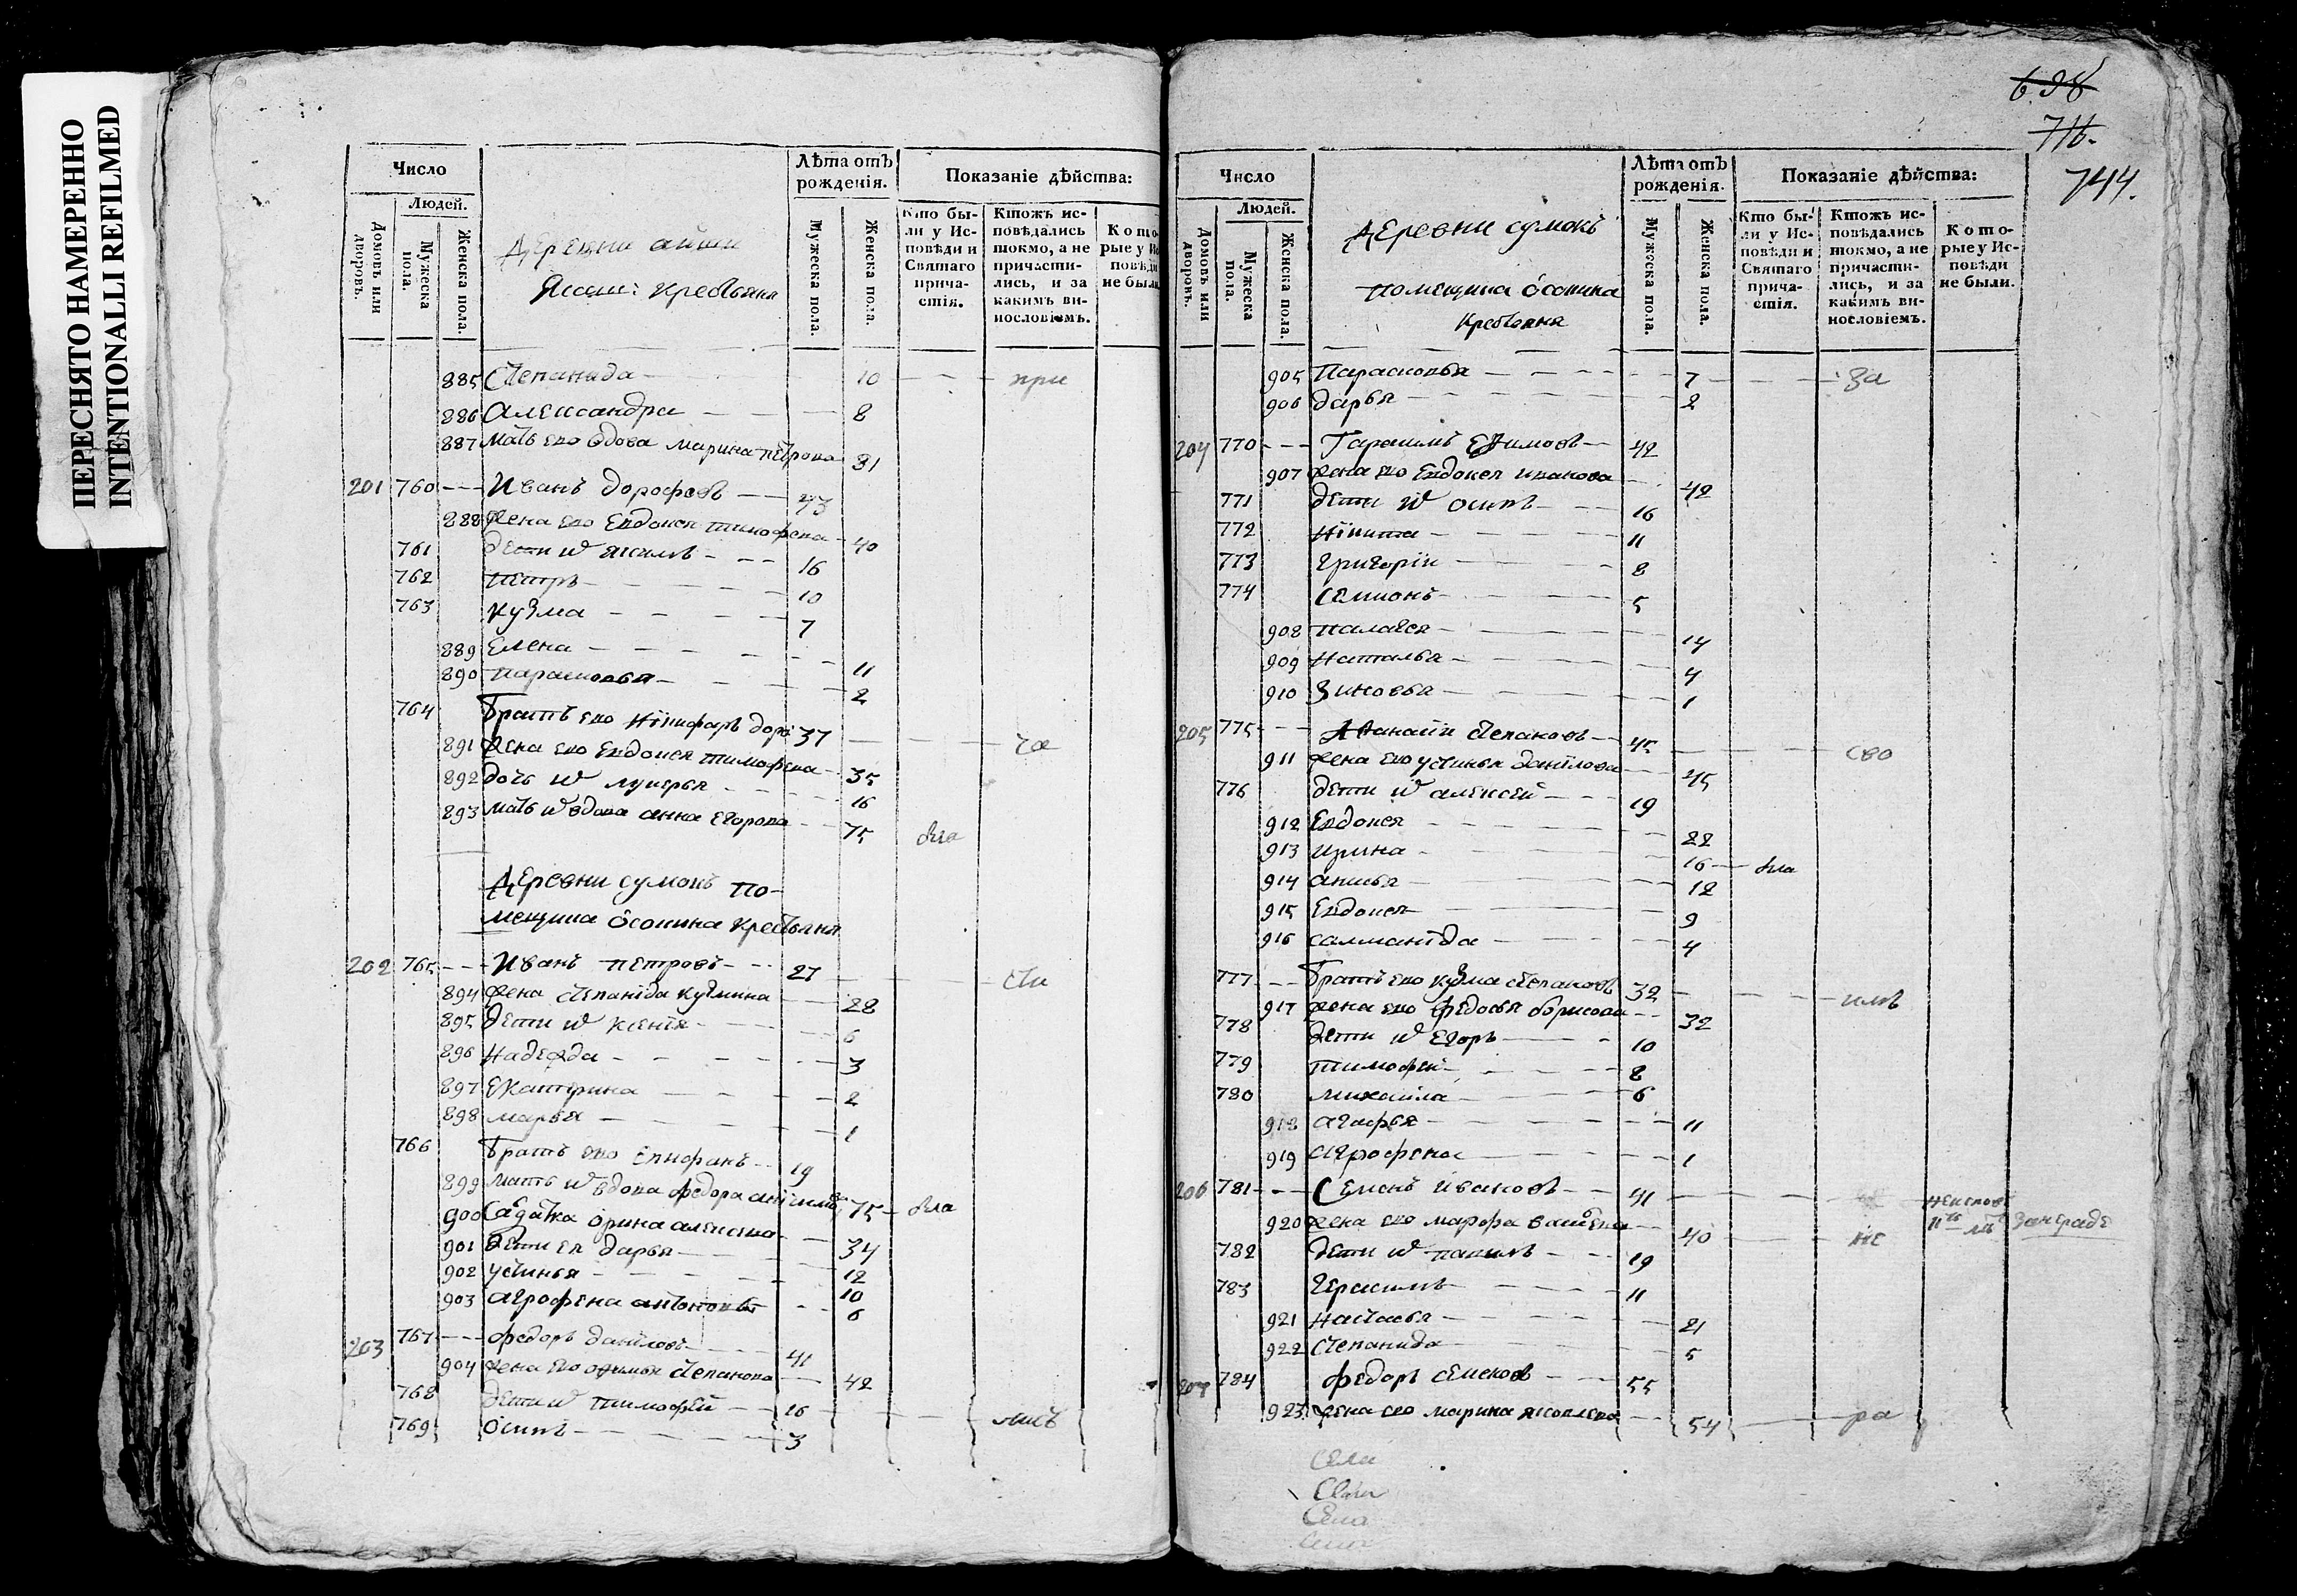 ПЕРЕСНЯТО НАМЕРЕННО
INTENTIONALLI REFILMED
Число
Людей.
Домовъ или дворовъ.
Мужеска пола.
Женска пола.
Деревни
крестьяня
Лѣта отъ рожденія.
Мужеска пола.
Женска пола.
Показаніе дѣйства:
Кто бы-
ли у Ис-
повѣди и
Святаго
прича-
стія.
Ктожъ ис-
повѣдались
токмо, а не
причасти-
лись, и за
какимъ ви-
нословіемъ.
Кото-
рые у Ис
повѣди
не были.
885 Степанида 10 при
886 Александра 8
887 мать ево вдова марина петрова 81
201 760 Иванъ дорофеевъ 43
888 жена ево Евдокея тимофеева 40
761 дети w якимъ 16
762 петръ 10
763 кузма 7
889 Елена 11
890 парасковья 2
764 братъ ево Нікифаръ доро: 37 ча
891 жена ево Евдокея тимофеева 35
892 дочь w лукерья 16
893 мать w вдова анна Егорова 75 была
Деревни сумокъ по-
мещика Осокина крестьяня
202 765 Иванъ петровъ 27 сти
894 жена степаніда кузмина 28
895 дети w ксенія 6
896 надежда 3
897 Екатерина 2
898 марья 1
766 братъ ево Епифанъ 19
899 мать w вдова федора 75 была
900 салдатка орина алексеева 34
901 дети ея дарья 12
902 устинья 10
903 агрофена антонова 6
203 767 федоръ данїловъ 41
904 жена ево степанова 42
768 дети w тимофей 16 лисъ
769 осипъ 3
698
716.
744.
Число
Людей.
Домовъ или дворовъ.
Мужеска пола.
Женска пола.
Деревни сумокъ
помещика Осокина
крестьяня
Лѣта отъ рожденія.
Мужеска пола.
Женска пола.
Показаніе дѣйства:
Кто бы-
ли у Ис-
повѣди и
Святаго
прича-
стія.
Ктожъ ис-
повѣдались
токмо, а не
причасти-
лись, и за
какимъ ви-
нословіемъ.
Кото-
рые у Ис-
повѣди
не были.
905 Парасковья 7 за
906 дарья 2
204 770 Гарасимъ Ефимовъ 42
907 жена ево Евдокея иванова 42
771 дети w осипъ 16
772 Нікита 11
773 григорїи 8
774 семионъ 5
908 палагея 14
909 наталья 4
910 Зиновья 1
205 775 Афанасїи степановъ 45 сво
911 жена ево устинья данїлова 45
776 дети w алексей 19
912 Евдокея 22
913 ирина 16 была
914 анисья 12
915 Евдокея 9
916 саламанїда 4
777 братъ ево кузма степановъ 32 имъ
917 жена ево федосья борисова 32
778 дети w Егоръ 10
779 тимофей 8
780 михаила 6
918 агафья 11
919 агрофена 1
206 781 Семенъ ивановъ 41
920 жена ево марфа 40 не
782 дети w 19
783 герасимъ 11
921 настасья 21
922 степанида 5
207 784 федоръ семеновъ 55
923 жена ево марина яковлева 54 ра